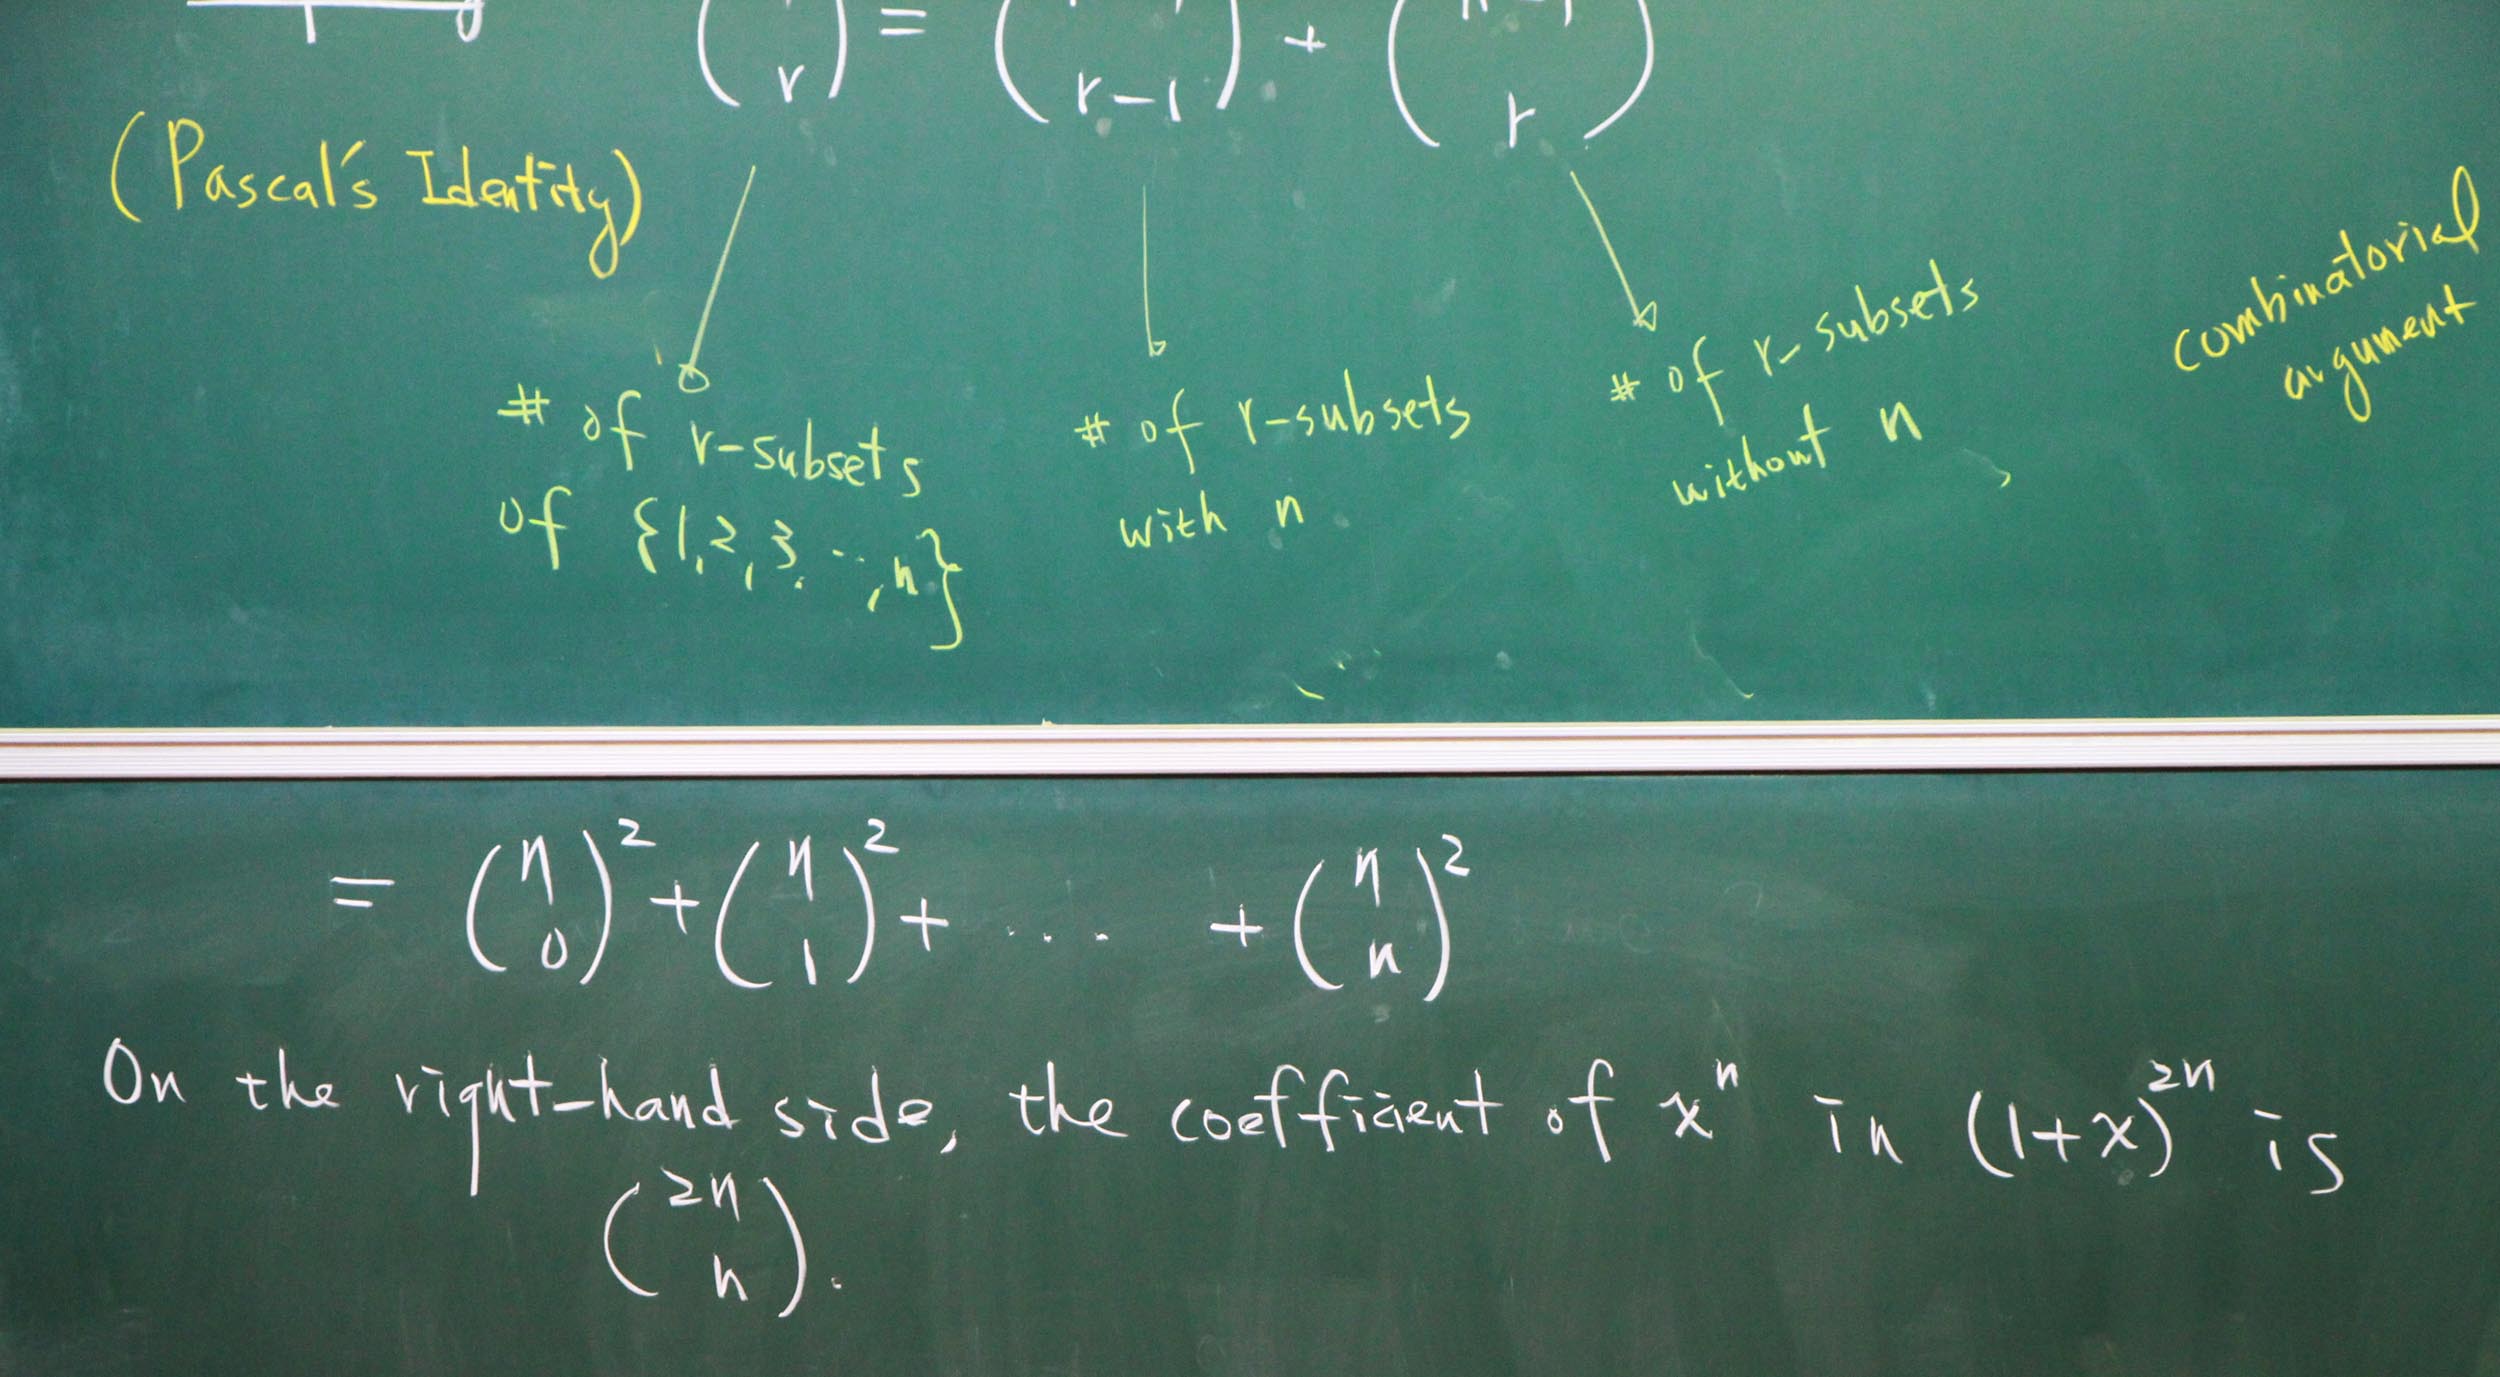 ( r ) = ( r-1 ) + ( r )
(Pascal's Identity)
# of r-subsets
of {1,2,3,...,n}
# of r-subsets
with n
# of r-subsets
without n
combinatorial
argument
= (n 0)² + (n 1)² + .... + (n n)²
On the right-hand side, the coefficient of xⁿ in (1+x)²ⁿ is
(2n n).